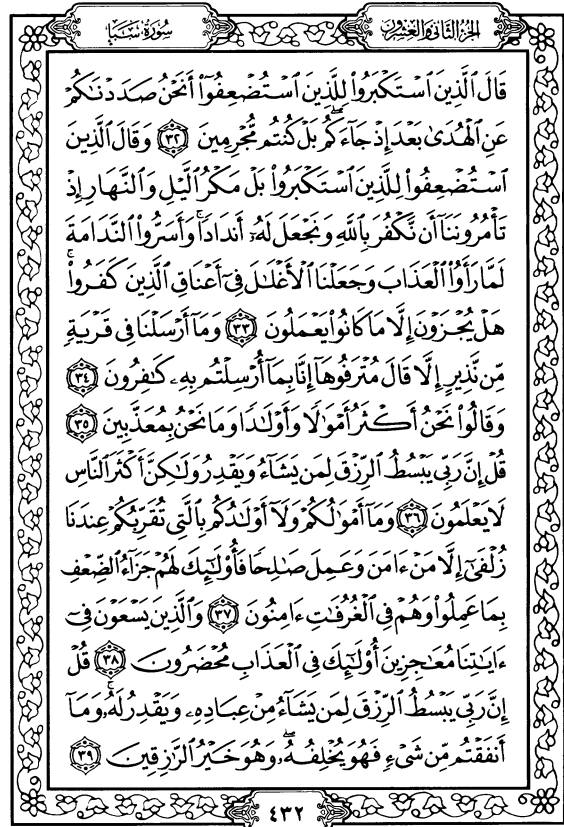 الجزء الثاني والعشرون
سورة سبإ
قَالَ ٱلَّذِينَ ٱسْتَكْبَرُوا۟ لِلَّذِينَ ٱسْتُضْعِفُوٓا۟ أَنَحْنُ صَدَدْنَٰكُمْ
عَنِ ٱلْهُدَىٰ بَعْدَ إِذْ جَآءَكُم ۖ بَلْ كُنتُم مُّجْرِمِينَ ٣٢ وَقَالَ ٱلَّذِينَ
ٱسْتُضْعِفُوا۟ لِلَّذِينَ ٱسْتَكْبَرُوا۟ بَلْ مَكْرُ ٱلَّيْلِ وَٱلنَّهَارِ إِذْ
تَأْمُرُونَنَآ أَن نَّكْفُرَ بِٱللَّهِ وَنَجْعَلَ لَهُۥٓ أَندَادًا ۚ وَأَسَرُّوا۟ ٱلنَّدَامَةَ
لَمَّا رَأَوُا۟ ٱلْعَذَابَ وَجَعَلْنَا ٱلْأَغْلَٰلَ فِىٓ أَعْنَاقِ ٱلَّذِينَ كَفَرُوا۟ ۚ
هَلْ يُجْزَوْنَ إِلَّا مَا كَانُوا۟ يَعْمَلُونَ ٣٣ وَمَآ أَرْسَلْنَا فِى قَرْيَةٍ
مِّن نَّذِيرٍ إِلَّا قَالَ مُتْرَفُوهَآ إِنَّا بِمَآ أُرْسِلْتُم بِهِۦ كَٰفِرُونَ ٣٤
وَقَالُوا۟ نَحْنُ أَكْثَرُ أَمْوَٰلًا وَأَوْلَٰدًا وَمَا نَحْنُ بِمُعَذَّبِينَ ٣٥
قُلْ إِنَّ رَبِّى يَبْسُطُ ٱلرِّزْقَ لِمَن يَشَآءُ وَيَقْدِرُ وَلَٰكِنَّ أَكْثَرَ ٱلنَّاسِ
لَا يَعْلَمُونَ ٣٦ وَمَآ أَمْوَٰلُكُمْ وَلَآ أَوْلَٰدُكُم بِٱلَّتِى تُقَرِّبُكُمْ عِندَنَا
زُلْفَىٰٓ إِلَّا مَنْ ءَامَنَ وَعَمِلَ صَٰلِحًا فَأُو۟لَٰٓئِكَ لَهُمْ جَزَآءُ ٱلضِّعْفِ
بِمَا عَمِلُوا۟ وَهُمْ فِى ٱلْغُرُفَٰتِ ءَامِنُونَ ٣٧ وَٱلَّذِينَ يَسْعَوْنَ فِىٓ
ءَايَٰتِنَا مُعَٰجِزِينَ أُو۟لَٰٓئِكَ فِى ٱلْعَذَابِ مُحْضَرُونَ ٣٨ قُلْ
إِنَّ رَبِّى يَبْسُطُ ٱلرِّزْقَ لِمَن يَشَآءُ مِنْ عِبَادِهِۦ وَيَقْدِرُ لَهُۥ ۚ وَمَآ
أَنفَقْتُم مِّن شَىْءٍ فَهُوَ يُخْلِفُهُۥ ۖ وَهُوَ خَيْرُ ٱلرَّٰزِقِينَ ٣٩
٤٣٢